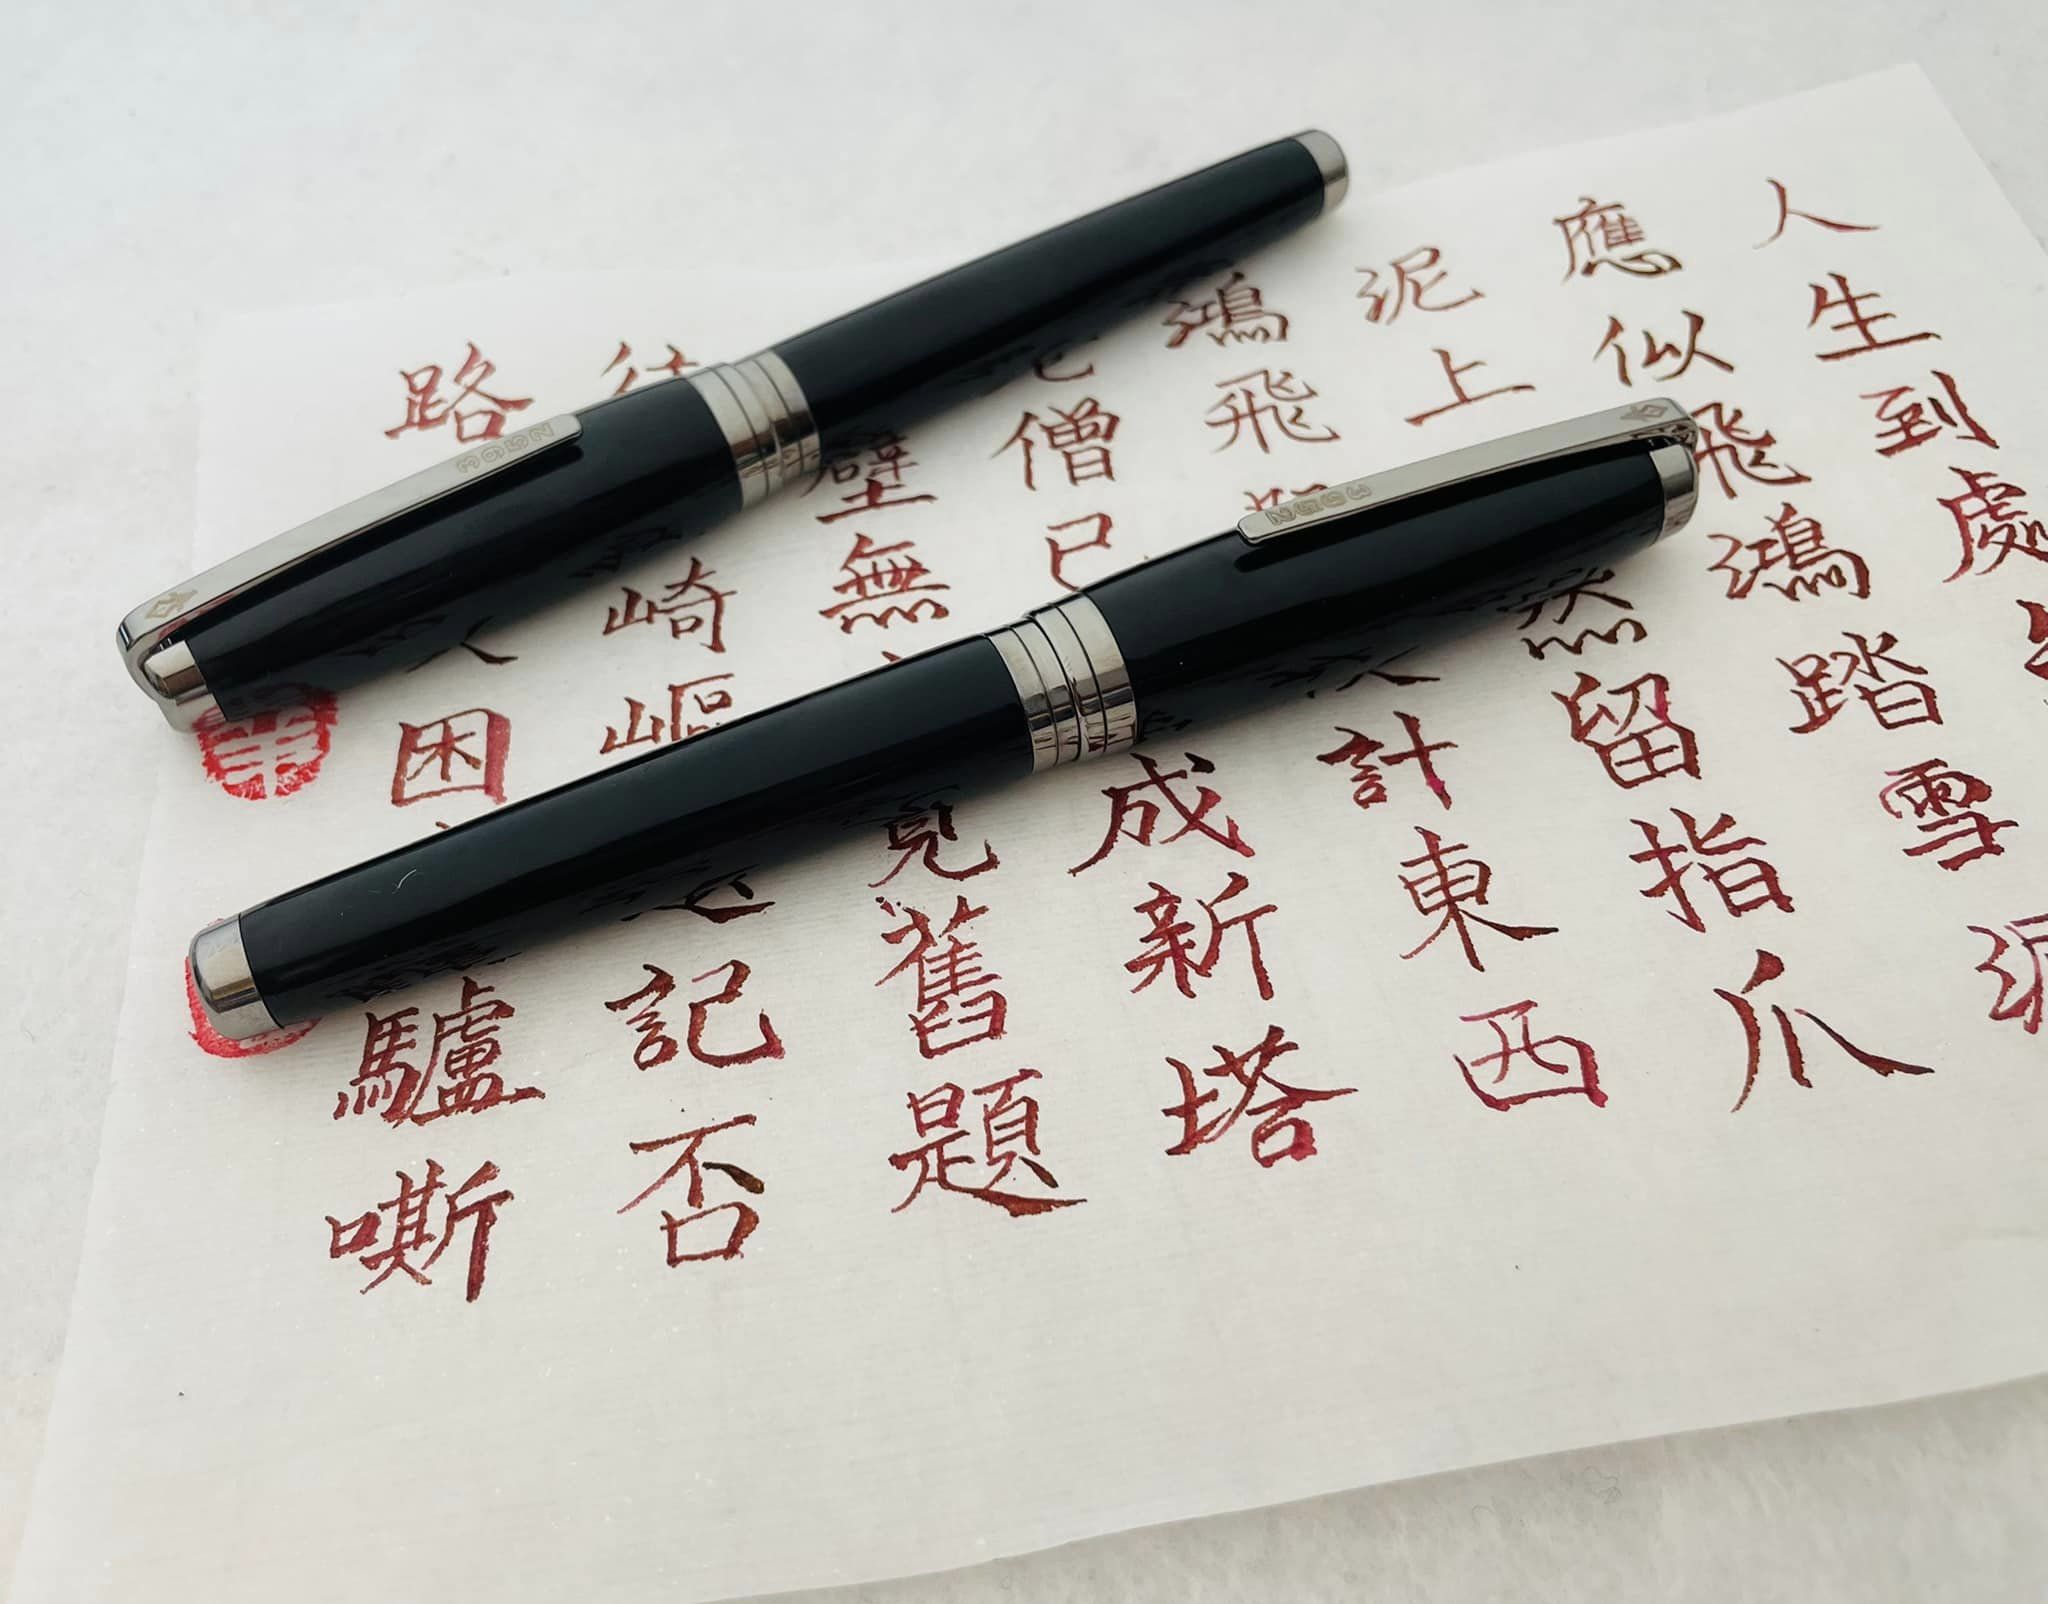 人生到處
應似飛鴻踏雪泥
泥上然留指爪
鴻飛計東西
僧已成新塔
壁無見舊題
往崎嶇記否
路人困驢嘶